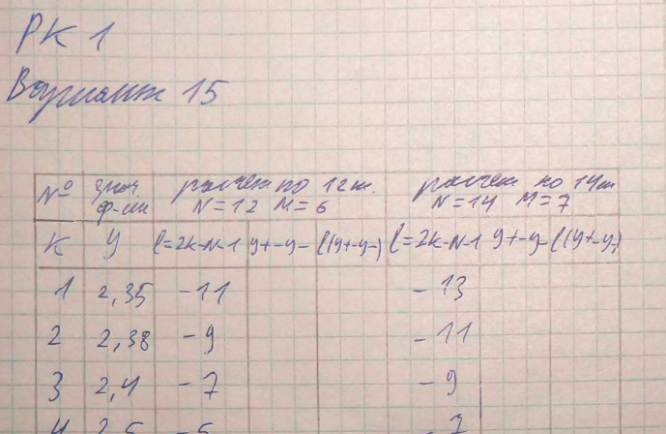 РК 1
Вариант 15
№ знач. расчет по 12т. расчет по 14т
ф-ии N=12 M=6 N=14 M=7
К У l=2k-N-1 y+-y- l(y+-y-) l=2k-N-1 y+-y- l(y+-y-)
1 2,35 -11 -13
2 2,38 -9 -11
3 2,4 -7 -9
4 2,5 -5 -7